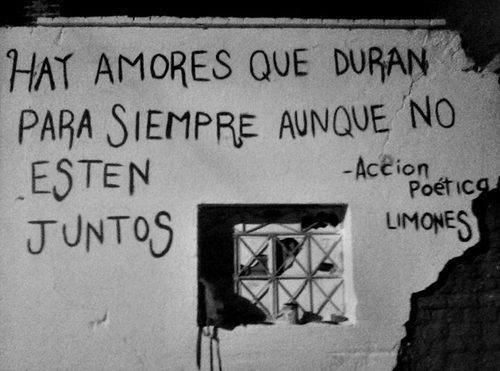 HAY AMORES QUE DURAN
PARA SIEMPRE AUNQUE NO
ESTEN
JUNTOS
-Accion
Poética
LIMONES